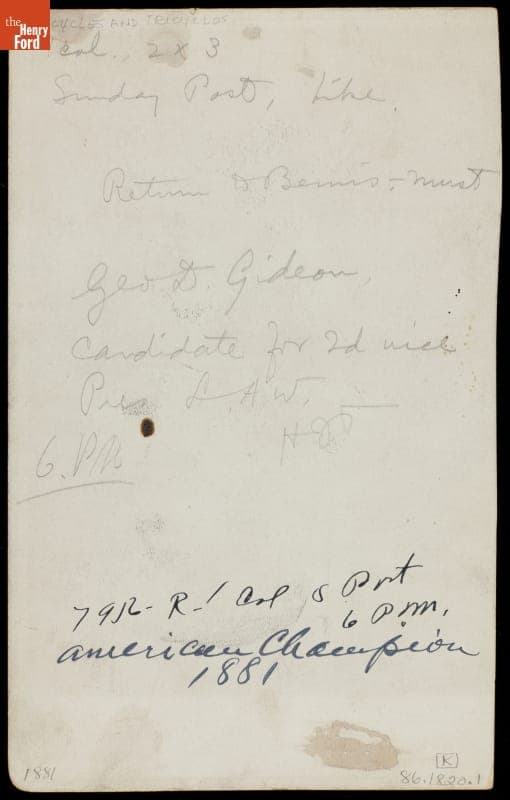 the
Henry
Ford
CYCLES AND TRICYCLES
col., 2 x 3
Sunday Post, Like.
Return to Bemis - must
Geo. D. Gideon,
candidate for 2d vice
Pres L.A.W.
6. PM
7912- R-1 Col S Post
6 P.M.
American Champion
1881
1881
K
86.1820.1